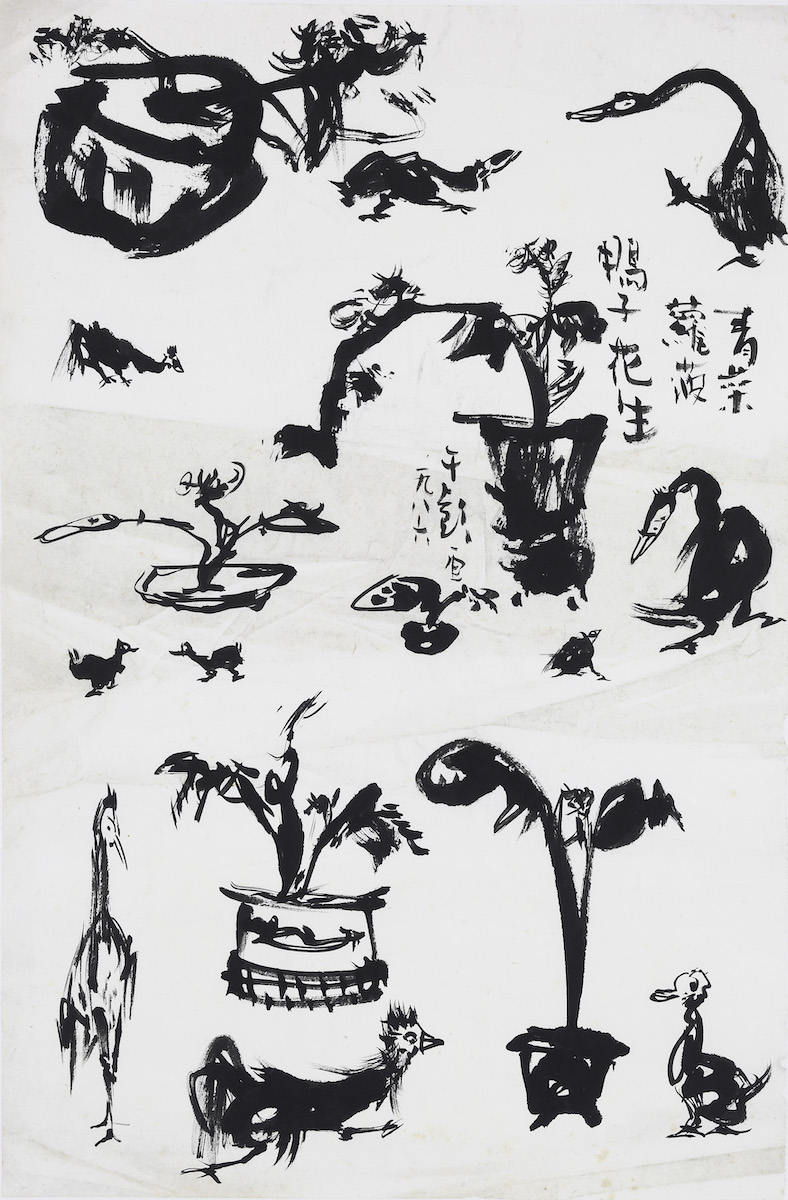 青菜
蘿菠
鴨子花生
午彭画
一九八六